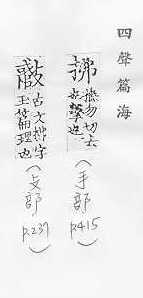 四聲篇海
拂撫勿切去
也擊也
(手部 P.415)
古文拂字
玉篇理也
(攴部 P.237)